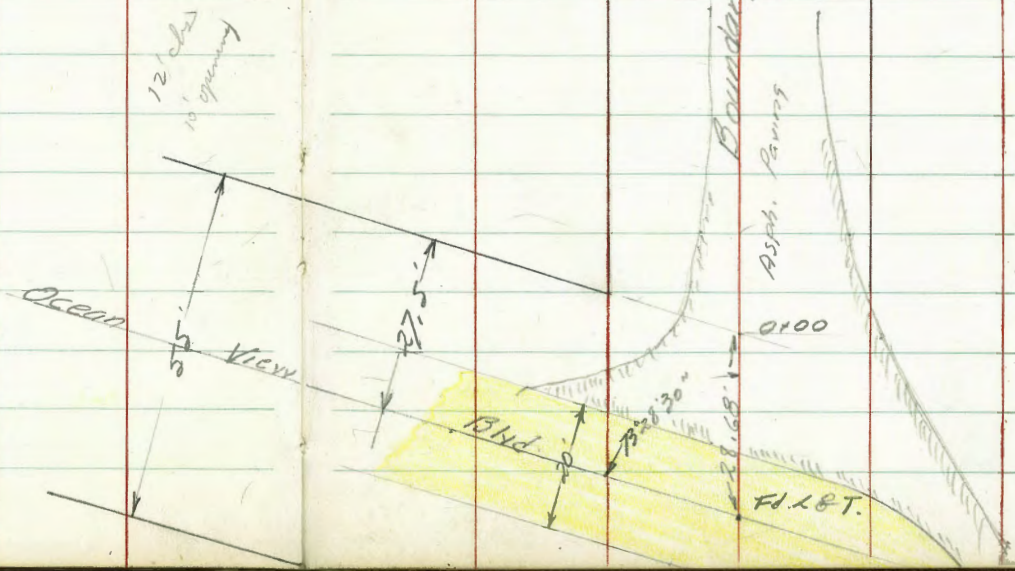 12' cbs
10' opening
Boundar
Asph. Paving
Ocean View Blvd.
55'
27.5'
20'
73°28'30"
28.68'
0+00
Fd. L&T.